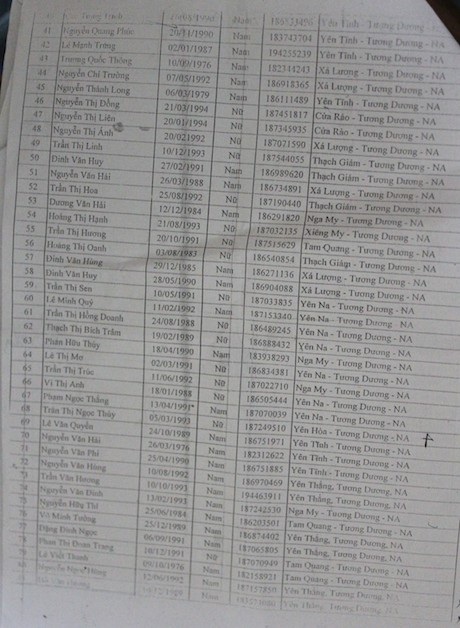 Nam 186533496 Yên Tĩnh - Tương Dương - NA
41 Nguyễn Quang Phúc 20/11/1990 Nam 183743704 Yên Tĩnh - Tương Dương - NA
42 Lê Mạnh Trùng 02/01/1987 Nam 194255239 Yên Tĩnh - Tương Dương - NA
43 Trương Quốc Thông 10/09/1976 Nam 182344243 Xá Lượng - Tương Dương - NA
44 Nguyễn Chí Trường 07/05/1992 Nam 186918365 Xá Lượng - Tương Dương - NA
45 Nguyễn Thành Long 06/03/1979 Nam 186111489 Yên Tĩnh - Tương Dương - NA
46 Nguyễn Thị Đồng 21/03/1994 Nữ 187451817 Cửa Rào - Tương Dương - NA
47 Nguyễn Thị Liên 20/01/1994 Nữ 187345935 Cửa Rào - Tương Dương - NA
48 Nguyễn Thị Ánh 20/02/1992 Nữ 187071590 Xá Lượng - Tương Dương - NA
49 Trần Thị Linh 10/12/1993 Nữ 187544055 Thạch Giám - Tương Dương - NA
50 Đinh Văn Huy 27/02/1991 Nam 186989620 Thạch Giám - Tương Dương - NA
51 Nguyễn Văn Hải 26/03/1988 Nam 186734891 Xá Lượng - Tương Dương - NA
52 Trần Thị Hoa 25/08/1992 Nữ 187190440 Thạch Giám - Tương Dương - NA
53 Dương Văn Hải 12/12/1984 Nam 186291820 Nga My - Tương Dương - NA
54 Hoàng Thị Hạnh 21/08/1993 Nữ 187032135 Xiêng My - Tương Dương - NA
55 Trần Thị Hương 20/10/1991 Nữ 187515629 Tam Quang - Tương Dương - NA
56 Hoàng Thị Oanh 03/08/1983 Nữ 186540854 Thạch Giám - Tương Dương - NA
57 Đinh Văn Hùng 29/12/1985 Nam 186271136 Xá Lượng - Tương Dương - NA
58 Đinh Văn Huy 28/05/1990 Nam 186904088 Xá Lượng - Tương Dương - NA
59 Trần Thị Sen 10/05/1991 Nữ 187033835 Yên Na - Tương Dương - NA
60 Lê Minh Quý 11/02/1992 Nam 187153340 Yên Na - Tương Dương - NA
61 Trần Thị Hồng Doanh 24/08/1988 Nữ 186489245 Yên Na - Tương Dương - NA
62 Thạch Thị Bích Trâm 19/02/1989 Nữ 186888432 Yên Na - Tương Dương - NA
63 Phan Hữu Thùy 18/04/1990 Nam 183938293 Nga My - Tương Dương - NA
64 Lê Thị Mơ 02/03/1991 Nữ 186834381 Yên Na - Tương Dương - NA
65 Trần Thị Trúc 11/06/1992 Nữ 187022710 Nga My - Tương Dương - NA
66 Vi Thị Anh 18/01/1988 Nữ 186505444 Yên Na - Tương Dương - NA
67 Phạm Ngọc Thắng 13/04/1991 Nam 187070039 Yên Na - Tương Dương - NA
68 Trần Thị Ngọc Thúy 05/03/1993 Nữ 187249510 Yên Hòa - Tương Dương - NA
69 Lê Văn Quyền 24/10/1989 Nam 186751971 Yên Tĩnh - Tương Dương - NA
70 Nguyễn Văn Hải 26/03/1976 Nam 182312622 Yên Tĩnh - Tương Dương - NA
71 Nguyễn Văn Phi 25/04/1990 Nam 186751885 Yên Tĩnh - Tương Dương - NA
72 Nguyễn Văn Hồng 10/08/1992 Nam 186970469 Yên Thắng, Tương Dương, NA
73 Trần Văn Hương 10/10/1993 Nam 194463911 Yên Thắng, Tương Dương, NA
74 Nguyễn Văn Đình 13/02/1993 Nam 187242530 Nga My - Tương Dương - NA
75 Nguyễn Hữu Thi 25/06/1984 Nam 186203501 Tam Quang - Tương Dương - NA
76 Võ Minh Tường 25/12/1989 Nam 186874402 Yên Thắng, Tương Dương, NA
77 Đặng Đình Ngọc 06/09/1991 Nam 187065805 Yên Thắng, Tương Dương, NA
78 Phan Thị Đoan Trang 10/12/1991 Nữ 187670949 Tam Quang - Tương Dương - NA
79 Lê Viết Thanh 09/10/1976 Nam 182158921 Tam Quang - Tương Dương - NA
Nguyễn Ngọc Hùng 12/06/1992 Nam 187157850 Yên Thắng, Tương Dương, NA
Nam Yên Thắng, Tương Dương, NA